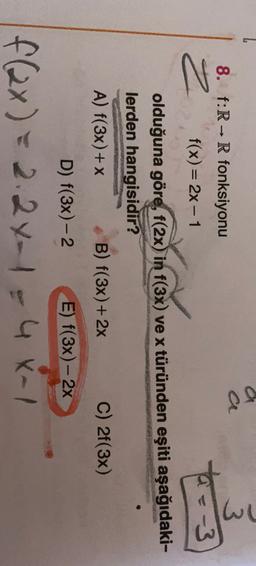 8. f:R → R fonksiyonu
f(x) = 2x – 1
olduğuna göre, f(2x) in f(3x) ve x türünden eşiti aşağıdaki-
lerden hangisidir?
A) f(3x) + x
B) f(3x) + 2x
C) 2f(3x)
D) f(3x) – 2
E) f(3x) – 2x
f(2x) = 2.2x-1 = 4x-1
a = -3